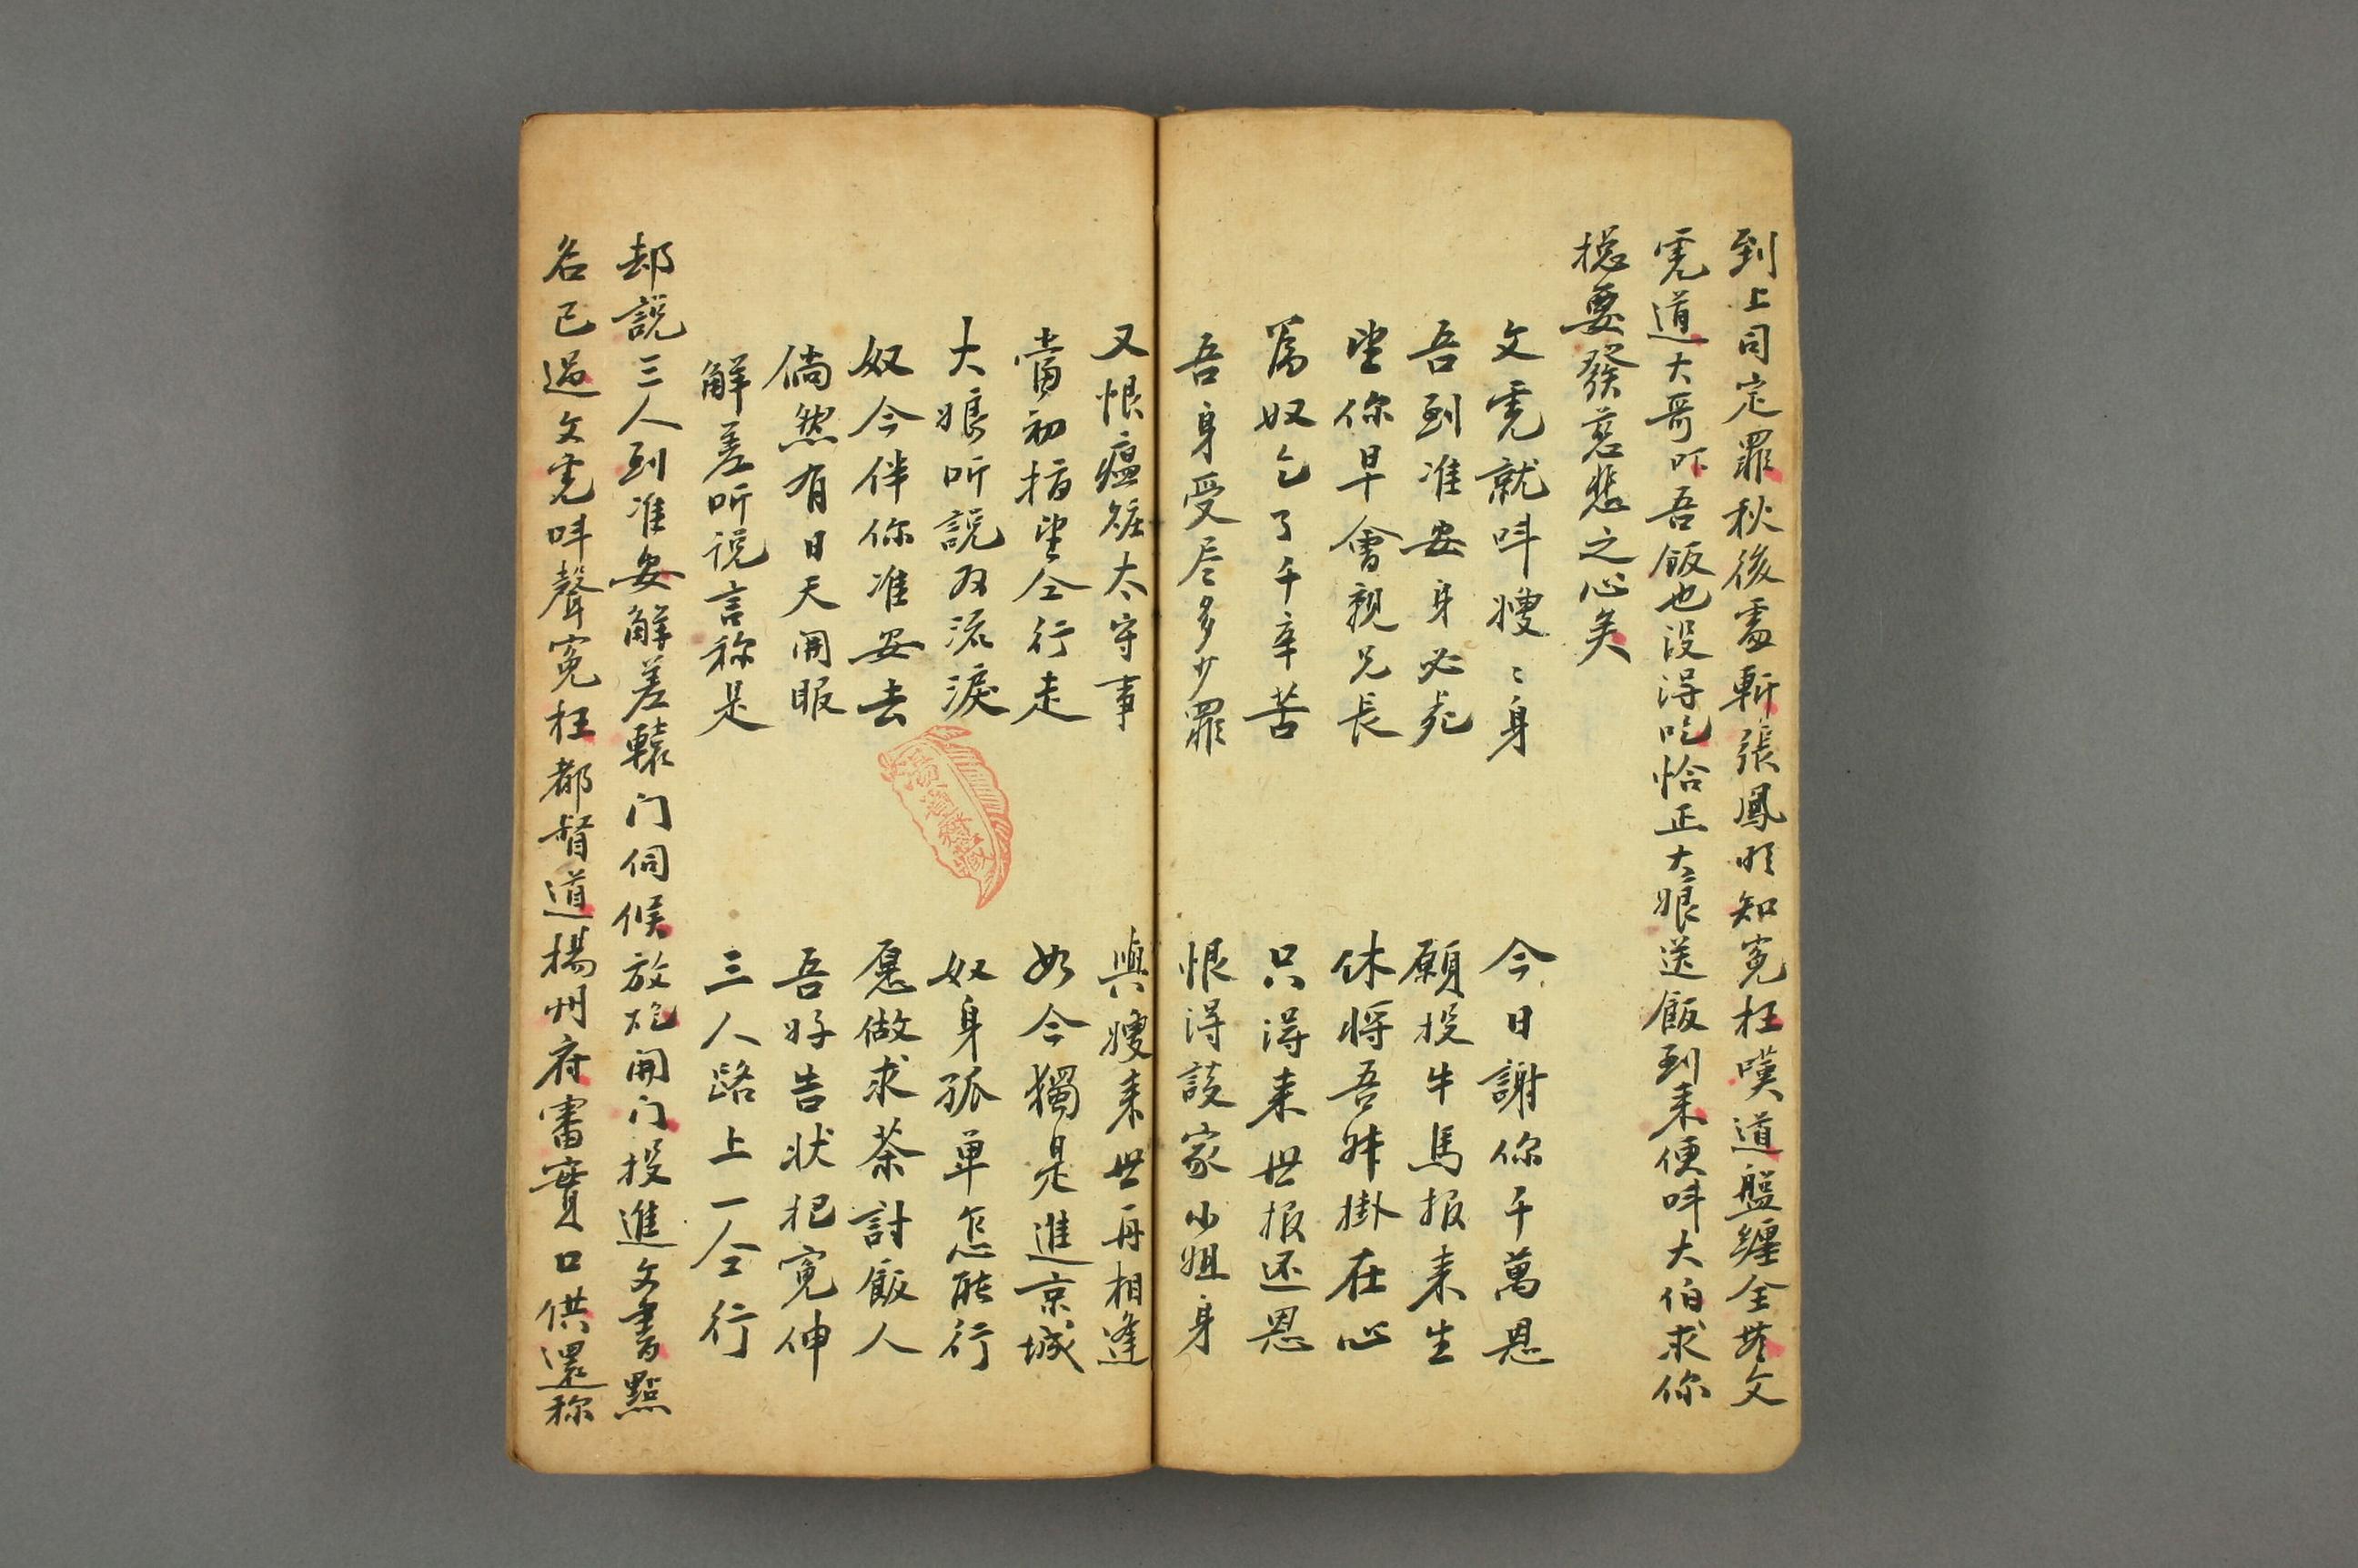 到上司定罪秋後處斬張鳳明知寃枉嘆道盤纏全無文
寃道大哥吓吾飯也没淂吃恰正大娘送飯到来便呌大伯求你
捴要發慈悲之心矣
文寃就呌嫂〻身　今日謝你千萬恩
吾到准安身必死　願投牛馬报来生
望你早會親兄長　休将吾身掛在心
為奴乞了千辛苦　只淂来世报还恩
吾身受尽多少罪　恨淂談家小姐身
又恨瘟疰太守事　與嫂来世再相逢
當初指望仝行走　如今獨是進京城
大娘听説双流淚　奴身孤单怎能行
奴今伴你准安去　愿做求茶討飯人
倘然有日天開眼　吾好告状把寃伸
解差听说言称是　三人路上一仝行
却説三人到准安解差轅门伺候放炮開门投進文書點
名已過文寃呌聲寃枉都督道揚州府審實口供還称
湯
藏